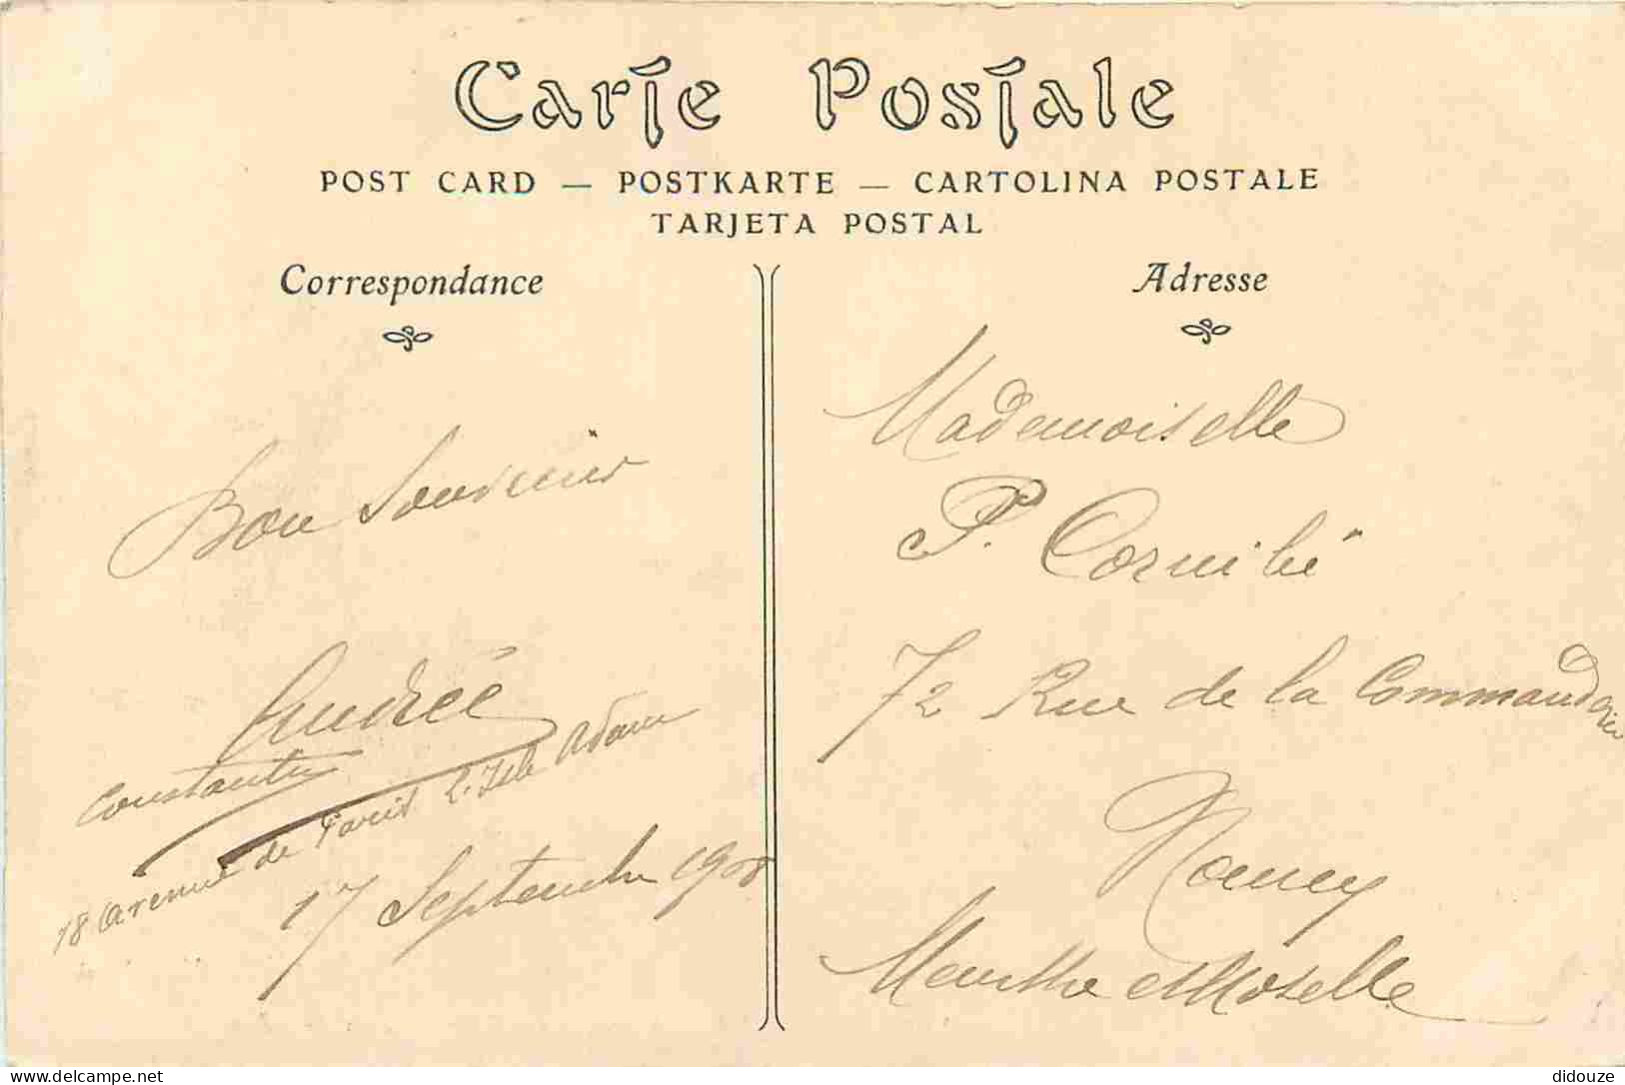 Carte Postale
POST CARD — POSTKARTE — CARTOLINA POSTALE
TARJETA POSTAL
Correspondance
Bon Souvenir
Andrée
Constantin
18 avenue de Paris L. Isle Adam
17 Septembre 1908
Adresse
Mademoiselle
P. Cornibé
72 Rue de la Commanderie
Nancy
Meurthe et Moselle
https://www.delcampe.net
didouze